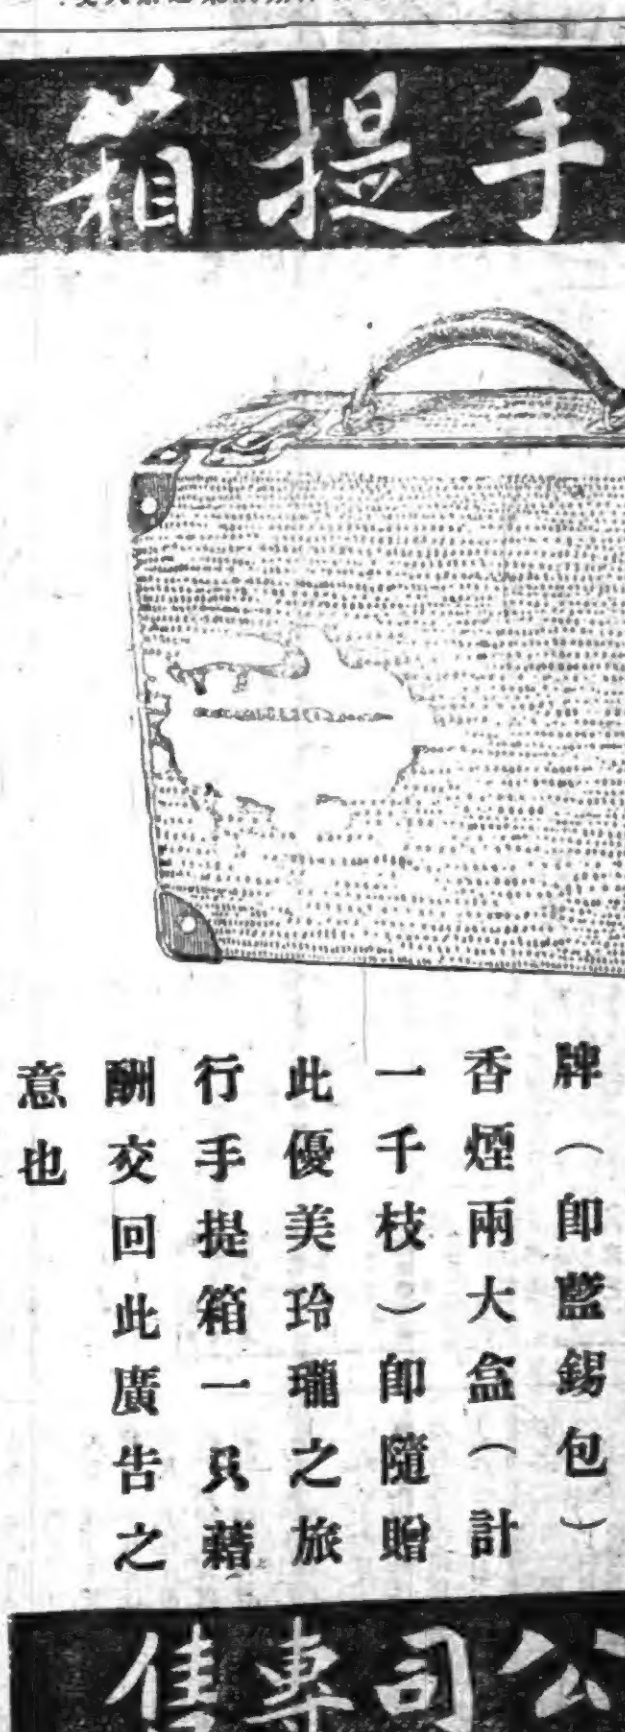 手提箱
牌（卽藍錫包）
香煙兩大盒（計
一千枝）卽隨贈
此優美玲瓏之旅
行手提箱一只藉
酬交回此廣告之
意也
公司專售